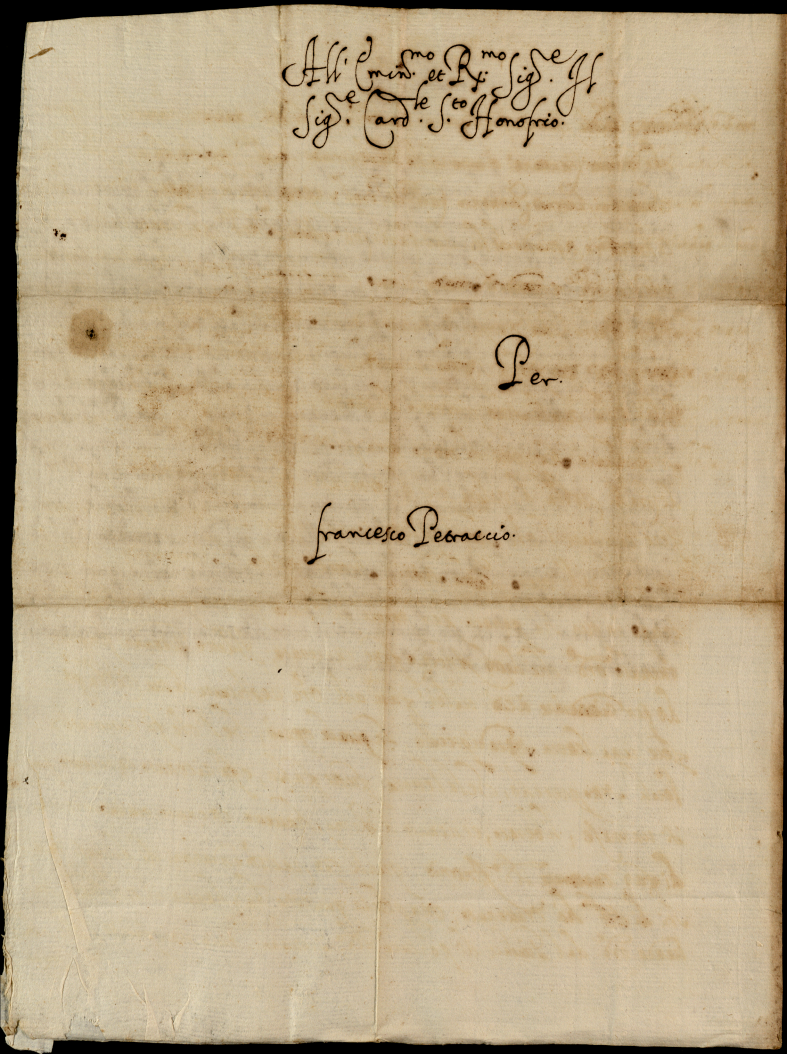 All' Emin.mo et R.mo Sig.e Il
Sig.e Card.le S.to Honofrio.
Per.
francesco Petraccio.